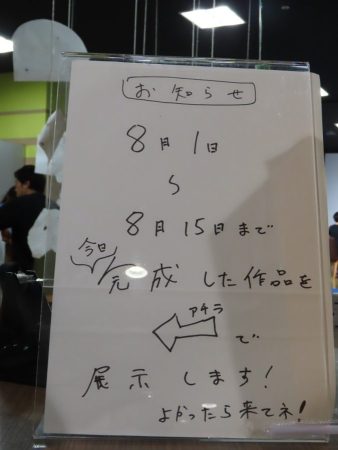 お知らせ
8月1日
〜
8月15日まで
今日
完成した作品を
アチラ
で
展示します!
よかったら来てネ!